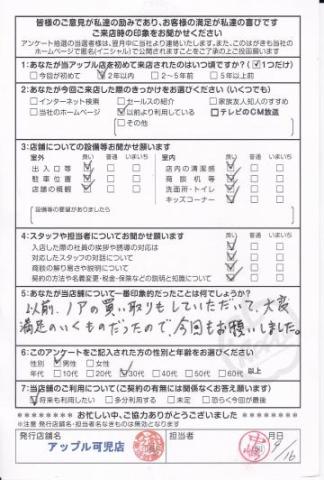 皆様のご意見が私達の励みであり、お客様の満足が私達の喜びです
ご来店時の印象をお聞かせください
アンケート抽選の当選者様は、翌月中に当社より連絡いたします。また、このはがきも当社ホームページで匿名(イニシャル)で公開されますことをご了承の上ご投函願います
1:あなたが当アップル店を初めて来店されたのはいつ頃ですか?(☑1つだけ)
□今回が初めて ☑2年以内 □2~5年前 □5年以上前
2:あなたが今回ご来店した時のきっかけをお選びください(いくつでも)
□インターネット検索 □セールスの紹介 □家族友人知人のすすめ
□当社のホームページ ☑以前より利用している □テレビのCM放送
□その他
3:店舗についての設備等お聞かせ願います
室外 良い 普通 いまいち 室内 良い 普通 いまいち
出入口等 ☑ □ □ 店内の清潔感 ☑ □ □
駐車位置 ☑ □ □ 商談机等 ☑ □ □
店舗の概観 ☑ □ □ 洗面所・トイレ ☑ □ □
キッズコーナー ☑ □ □
設備等の要望がありましたら
4:スタッフや担当者についてお聞かせ願います 良い 普通 いまいち
入店した際の社員の挨拶や誘導の対応は ☑ □ □
対応したスタッフの対話について ☑ □ □
商談の解り易さや説明について ☑ □ □
契約の方法や名義変更・税金・保険などの説明と知識について ☑ □ □
5:あなたが当店舗について一番印象的だったことは何でしょうか?
以前、ノアの買い取りもしていただいて、大変
満足のいくものだったので、今回もお願いしました。
6:このアンケートをご記入された方の性別と年齢をお選びください
性別 ☑男性 □女性
年代 □10代 □20代 ☑30代 □40代 □50代 □60代 以上
7:当店舗のご利用について(ご契約の有無には関係なくお答え願います)
☑将来も利用したい □多分利用する □未定 □恐らく今回が最後
******** お忙しい中、ご協力ありがとうございました ********
※注意 発行店舗名・担当者名なきものは無効となります
発行店舗名 担当者 月日
アップル可児店 9/16